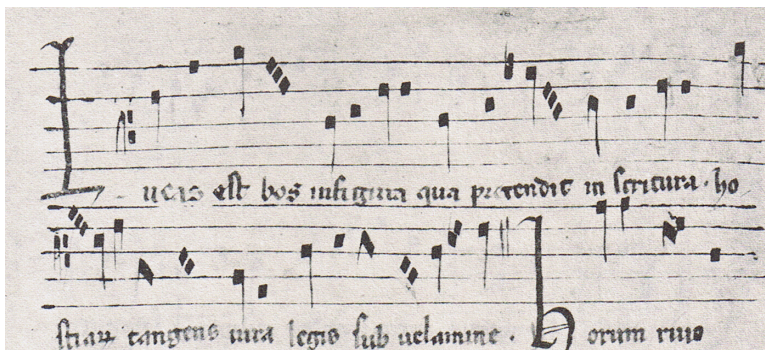 Lucas est bos in figura qua pretendit in scritura · ho
stiaꝝ tangens iura legis sub uelamine ·
Horum riuo